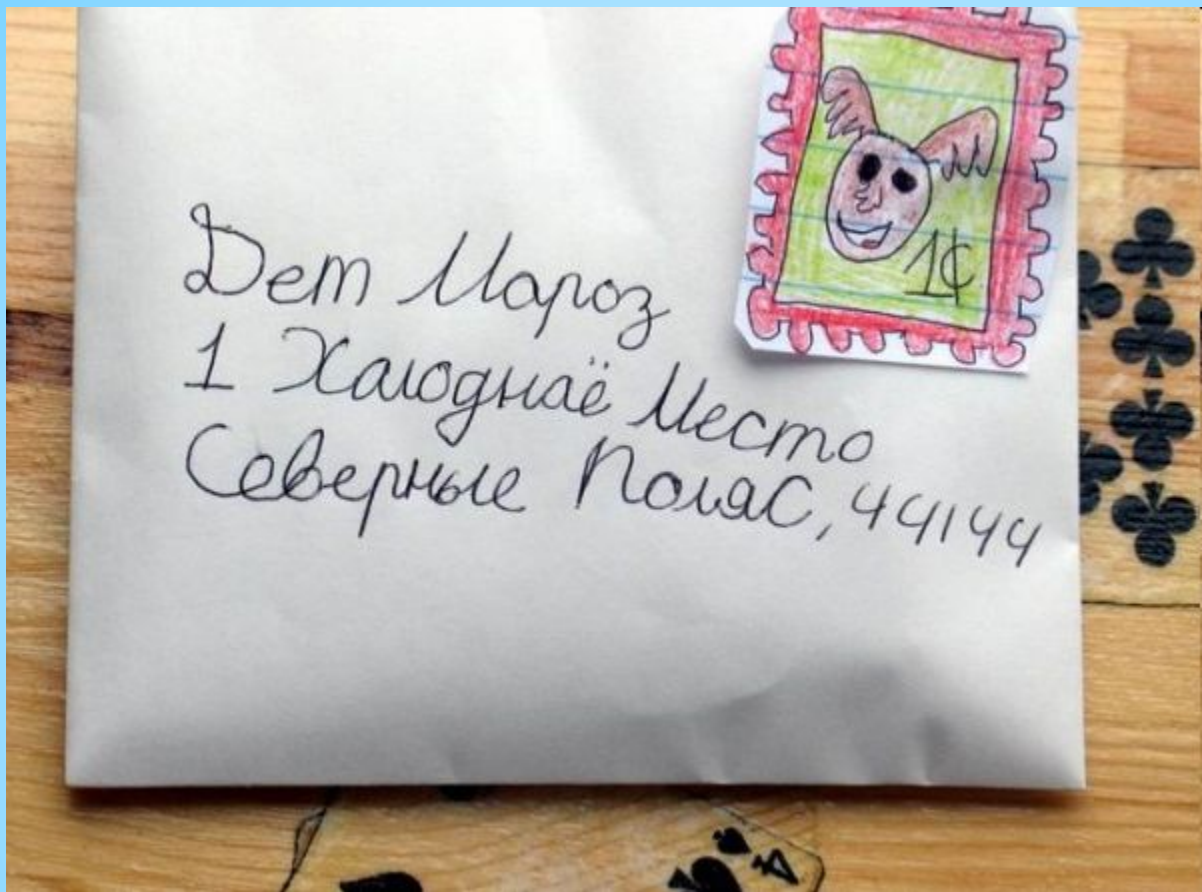 1¢
Дет Мароз
1 Халоднаё Место
Северные Поляс, 44144
4